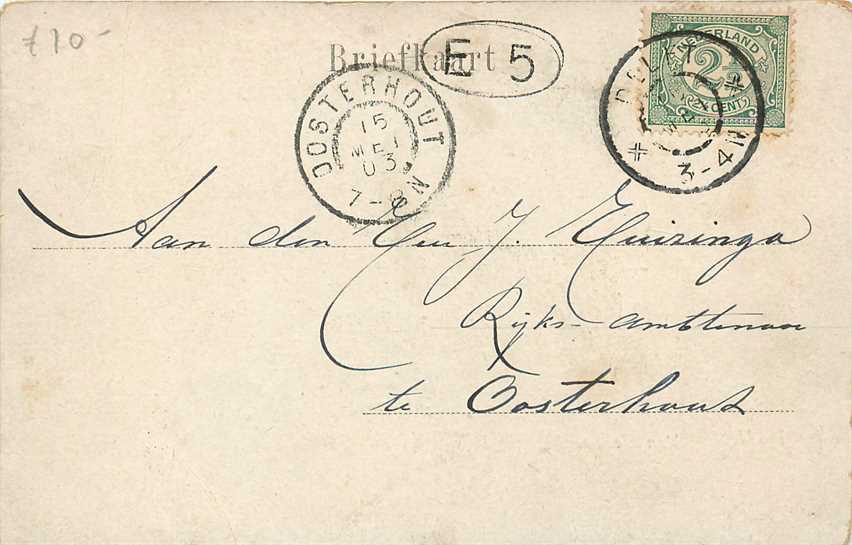 £10-
Briefkaart
E 5
NEDERLAND
2½
2½ CENT
3-4N
OOSTERHOUT
15
MEI
03
7-8N
Aan den Heer J. Huizinga
Rijks-ambtenaar
te Oosterhout